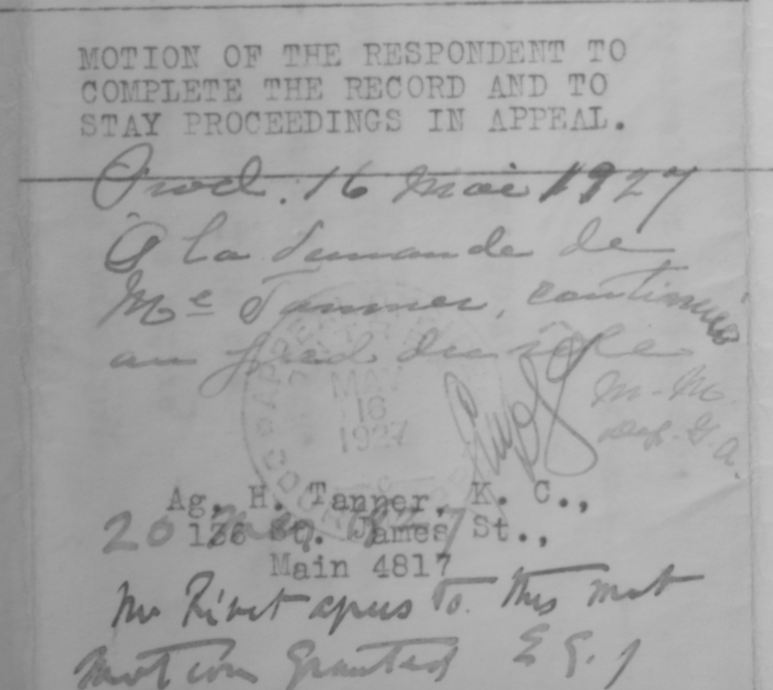 MOTION OF THE RESPONDENT TO
COMPLETE THE RECORD AND TO
STAY PROCEEDINGS IN APPEAL.
Prod. 16 Mai 1927
À la demande de
Me Tanner, continuée
au pied du rôle
MAY
16
1927
Ag. H. Tanner, K. C.,
136 St. James St.,
20 May 1927
Main 4817
Mr Rivet agrees to this mot
Motion granted E G. J